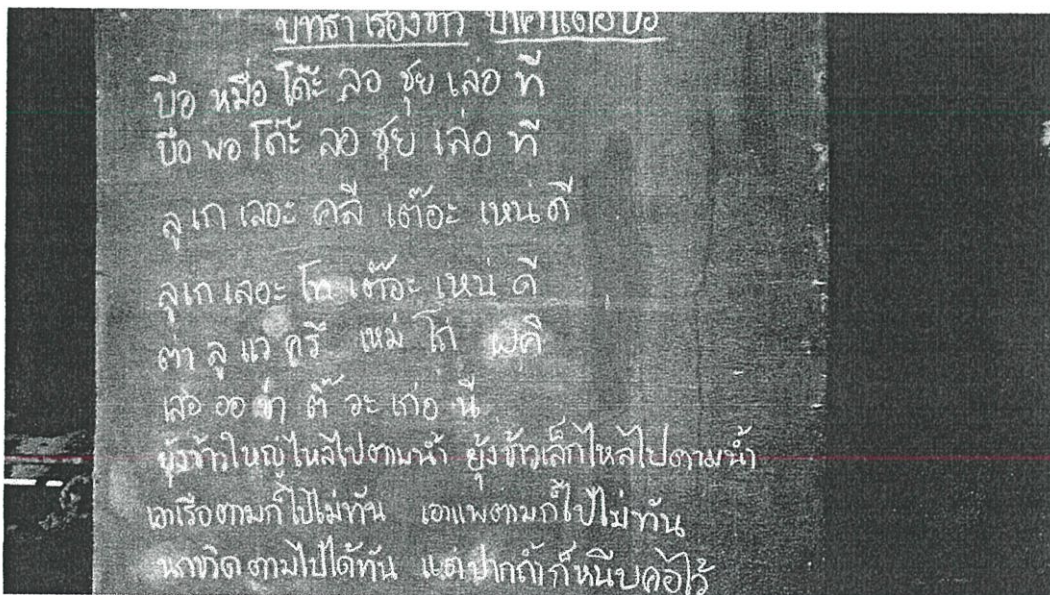 บทธา เรื่องข้าว
บือ หมื่อ โด๊ะ ลอ ชุย เล่อ ที
บือ พอ โด๊ะ ลอ ชุย เล่อ ที
ลู เก เลอะ คลี เต๊อะ เหน่ ดี
ลู เก เลอะ โท เต๊อะ เหน่ ดี
ต่า ลู แว ครี เหม่ โก่
เส่อ ออ ต๊ วะ เก่อ นี
ยุ้งข้าวใหญ่ไหลไปตามน้ำ ยุ้งข้าวเล็กไหลไปตามน้ำ
เอาเรือตามก็ไปไม่ทัน เอาแพตามก็ไปไม่ทัน
นกขวิดตามไปได้ทัน แต่ปากถ้ำก็หนีบคอไว้